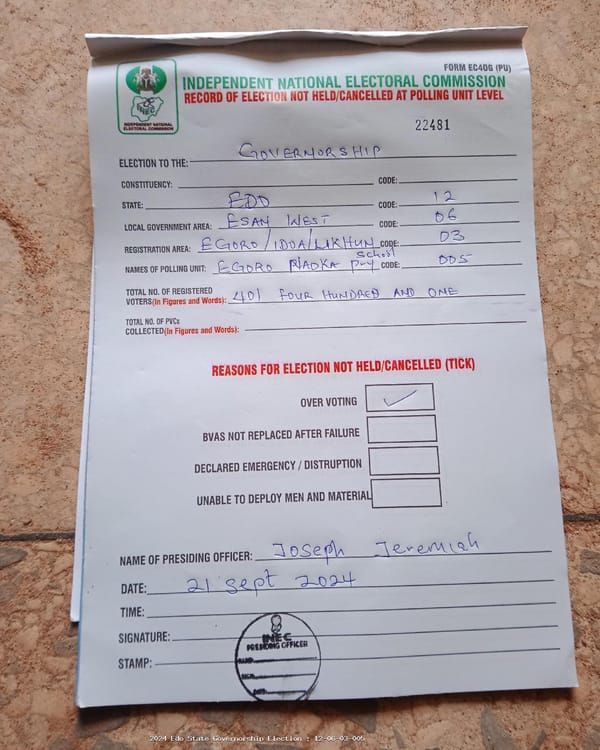 FORM EC40G (PU)
INDEPENDENT NATIONAL ELECTORAL COMMISSION
RECORD OF ELECTION NOT HELD/CANCELLED AT POLLING UNIT LEVEL
INEC
INDEPENDENT NATIONAL
ELECTORAL COMMISSION
22481
ELECTION TO THE: GOVERNORSHIP
CONSTITUENCY: CODE:
STATE: EDO CODE: 12
LOCAL GOVERNMENT AREA: ESAN WEST CODE: 06
REGISTRATION AREA: EGORO/IDOA/UKHUN CODE: 03
NAMES OF POLLING UNIT: EGORO NAOKA pry school CODE: 005
TOTAL NO. OF REGISTERED
VOTERS(In Figures and Words): 401 FOUR HUNDRED AND ONE
TOTAL NO. OF PVCs
COLLECTED(In Figures and Words):
REASONS FOR ELECTION NOT HELD/CANCELLED (TICK)
OVER VOTING ✓
BVAS NOT REPLACED AFTER FAILURE
DECLARED EMERGENCY / DISTRUPTION
UNABLE TO DEPLOY MEN AND MATERIAL
NAME OF PRESIDING OFFICER: Joseph Jeremiah
DATE: 21 sept 2024
TIME:
SIGNATURE:
STAMP:
INEC
PRESIDING OFFICER
NAME
SIGN
DATE
2024 Edo State Governorship Election : 12-06-03-005